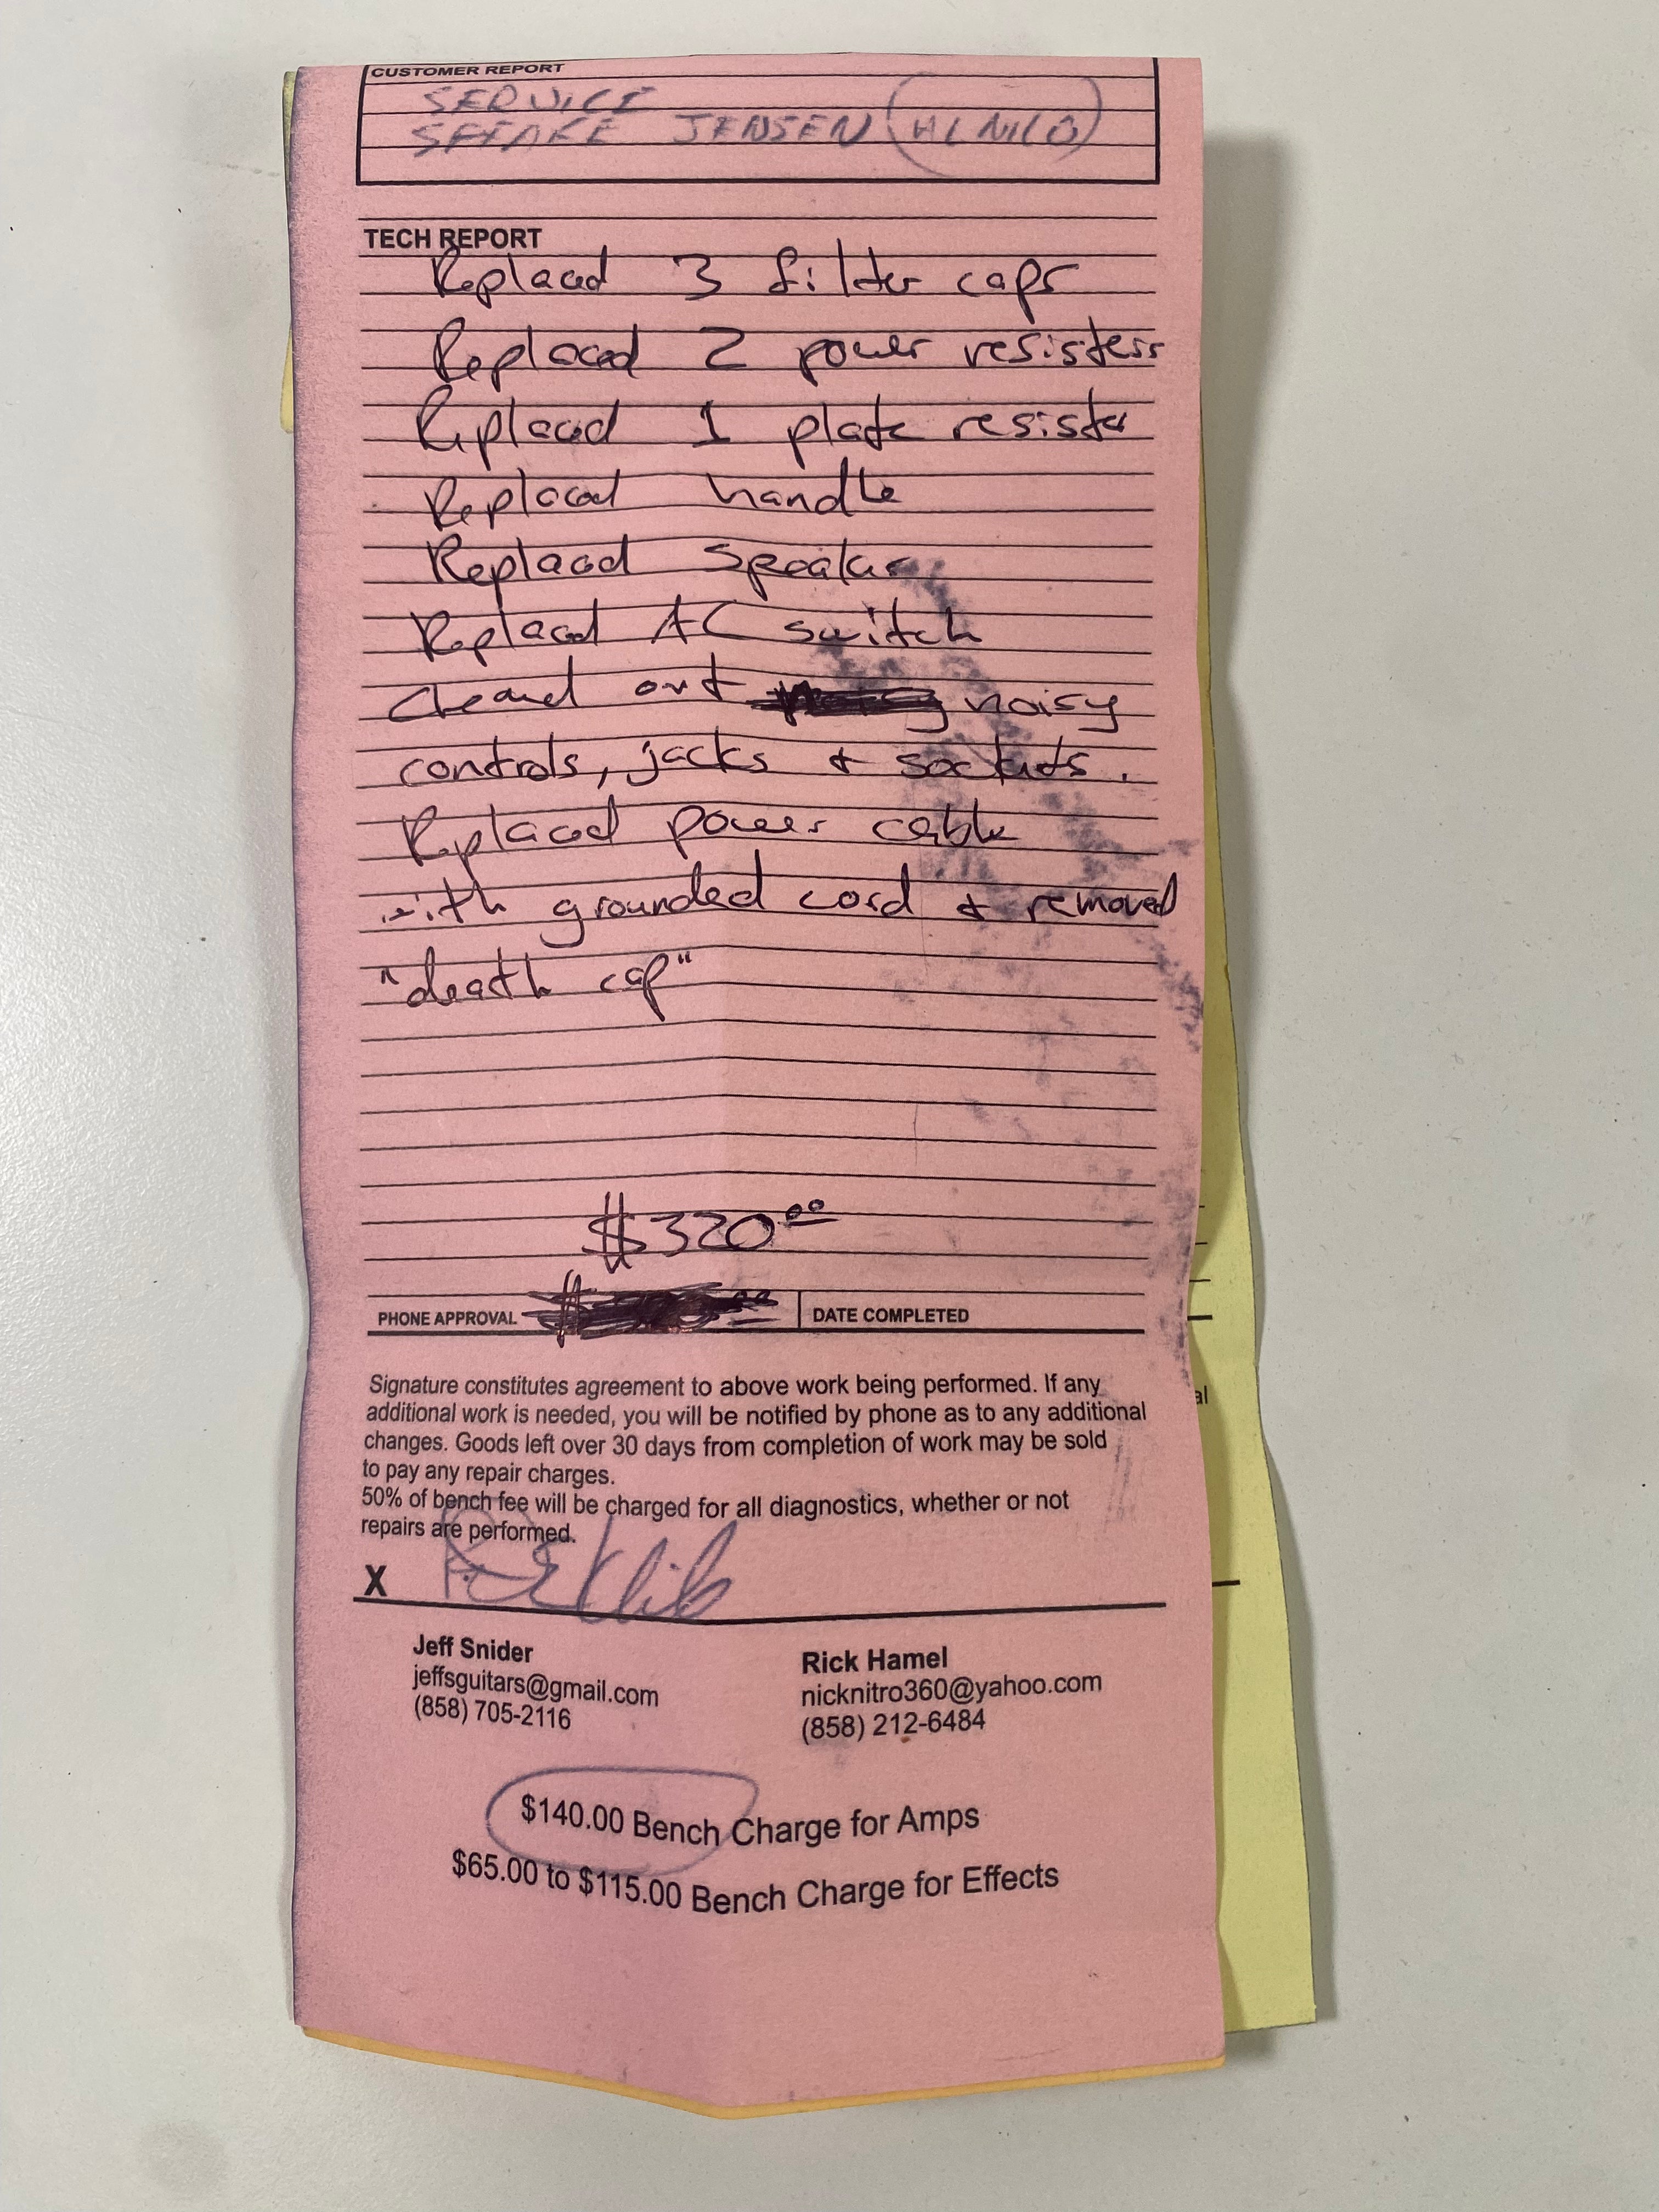 CUSTOMER REPORT
SERVICE
SPEAKE JENSEN (ALNICO)
TECH REPORT
Replaced 3 filter caps
Replaced 2 power resisters
Replaced 1 plate resister
Replaced handle
Replaced speaker
Replaced AC switch
cleaned out noisy
controls, jacks & sockets.
Replaced power cable
with grounded cord & removed
"death cap"
$320.00
PHONE APPROVAL
DATE COMPLETED
Signature constitutes agreement to above work being performed. If any
additional work is needed, you will be notified by phone as to any additional
changes. Goods left over 30 days from completion of work may be sold
to pay any repair charges.
50% of bench fee will be charged for all diagnostics, whether or not
repairs are performed.
X
Jeff Snider
jeffsguitars@gmail.com
(858) 705-2116
Rick Hamel
nicknitro360@yahoo.com
(858) 212-6484
$140.00 Bench Charge for Amps
$65.00 to $115.00 Bench Charge for Effects
al